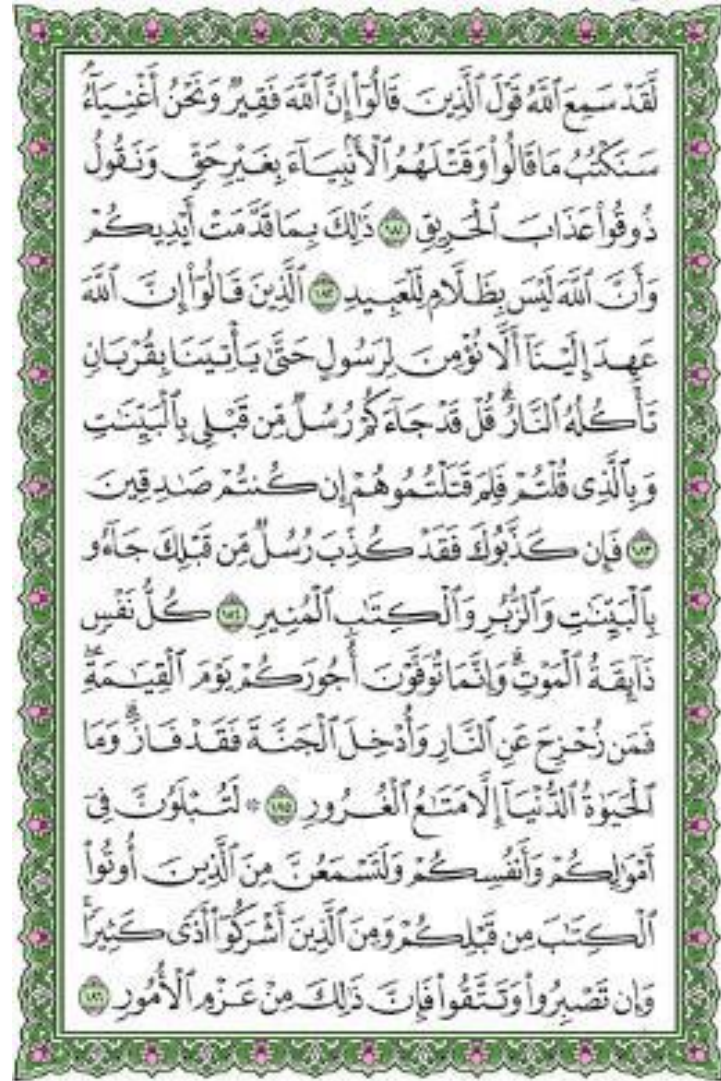 لَّقَدْ سَمِعَ ٱللَّهُ قَوْلَ ٱلَّذِينَ قَالُوٓا۟ إِنَّ ٱللَّهَ فَقِيرٌ وَنَحْنُ أَغْنِيَآءُ
سَنَكْتُبُ مَا قَالُوا۟ وَقَتْلَهُمُ ٱلْأَنۢبِيَآءَ بِغَيْرِ حَقٍّ وَنَقُولُ
ذُوقُوا۟ عَذَابَ ٱلْحَرِيقِ ١٨١ ذَٰلِكَ بِمَا قَدَّمَتْ أَيْدِيكُمْ
وَأَنَّ ٱللَّهَ لَيْسَ بِظَلَّامٍ لِّلْعَبِيدِ ١٨٢ ٱلَّذِينَ قَالُوٓا۟ إِنَّ ٱللَّهَ
عَهِدَ إِلَيْنَآ أَلَّا نُؤْمِنَ لِرَسُولٍ حَتَّىٰ يَأْتِيَنَا بِقُرْبَانٍ
تَأْكُلُهُ ٱلنَّارُ ۗ قُلْ قَدْ جَآءَكُمْ رُسُلٌ مِّن قَبْلِى بِٱلْبَيِّنَـٰتِ
وَبِٱلَّذِى قُلْتُمْ فَلِمَ قَتَلْتُمُوهُمْ إِن كُنتُمْ صَـٰدِقِينَ
١٨٣ فَإِن كَذَّبُوكَ فَقَدْ كُذِّبَ رُسُلٌ مِّن قَبْلِكَ جَآءُو
بِٱلْبَيِّنَـٰتِ وَٱلزُّبُرِ وَٱلْكِتَـٰبِ ٱلْمُنِيرِ ١٨٤ كُلُّ نَفْسٍ
ذَآئِقَةُ ٱلْمَوْتِ ۗ وَإِنَّمَا تُوَفَّوْنَ أُجُورَكُمْ يَوْمَ ٱلْقِيَـٰمَةِ ۖ
فَمَن زُحْزِحَ عَنِ ٱلنَّارِ وَأُدْخِلَ ٱلْجَنَّةَ فَقَدْ فَازَ ۗ وَمَا
ٱلْحَيَوٰةُ ٱلدُّنْيَآ إِلَّا مَتَـٰعُ ٱلْغُرُورِ ١٨٥ ۞ لَتُبْلَوُنَّ فِىٓ
أَمْوَٰلِكُمْ وَأَنفُسِكُمْ وَلَتَسْمَعُنَّ مِنَ ٱلَّذِينَ أُوتُوا۟
ٱلْكِتَـٰبَ مِن قَبْلِكُمْ وَمِنَ ٱلَّذِينَ أَشْرَكُوٓا۟ أَذًى كَثِيرًا ۚ
وَإِن تَصْبِرُوا۟ وَتَتَّقُوا۟ فَإِنَّ ذَٰلِكَ مِنْ عَزْمِ ٱلْأُمُورِ ١٨٦